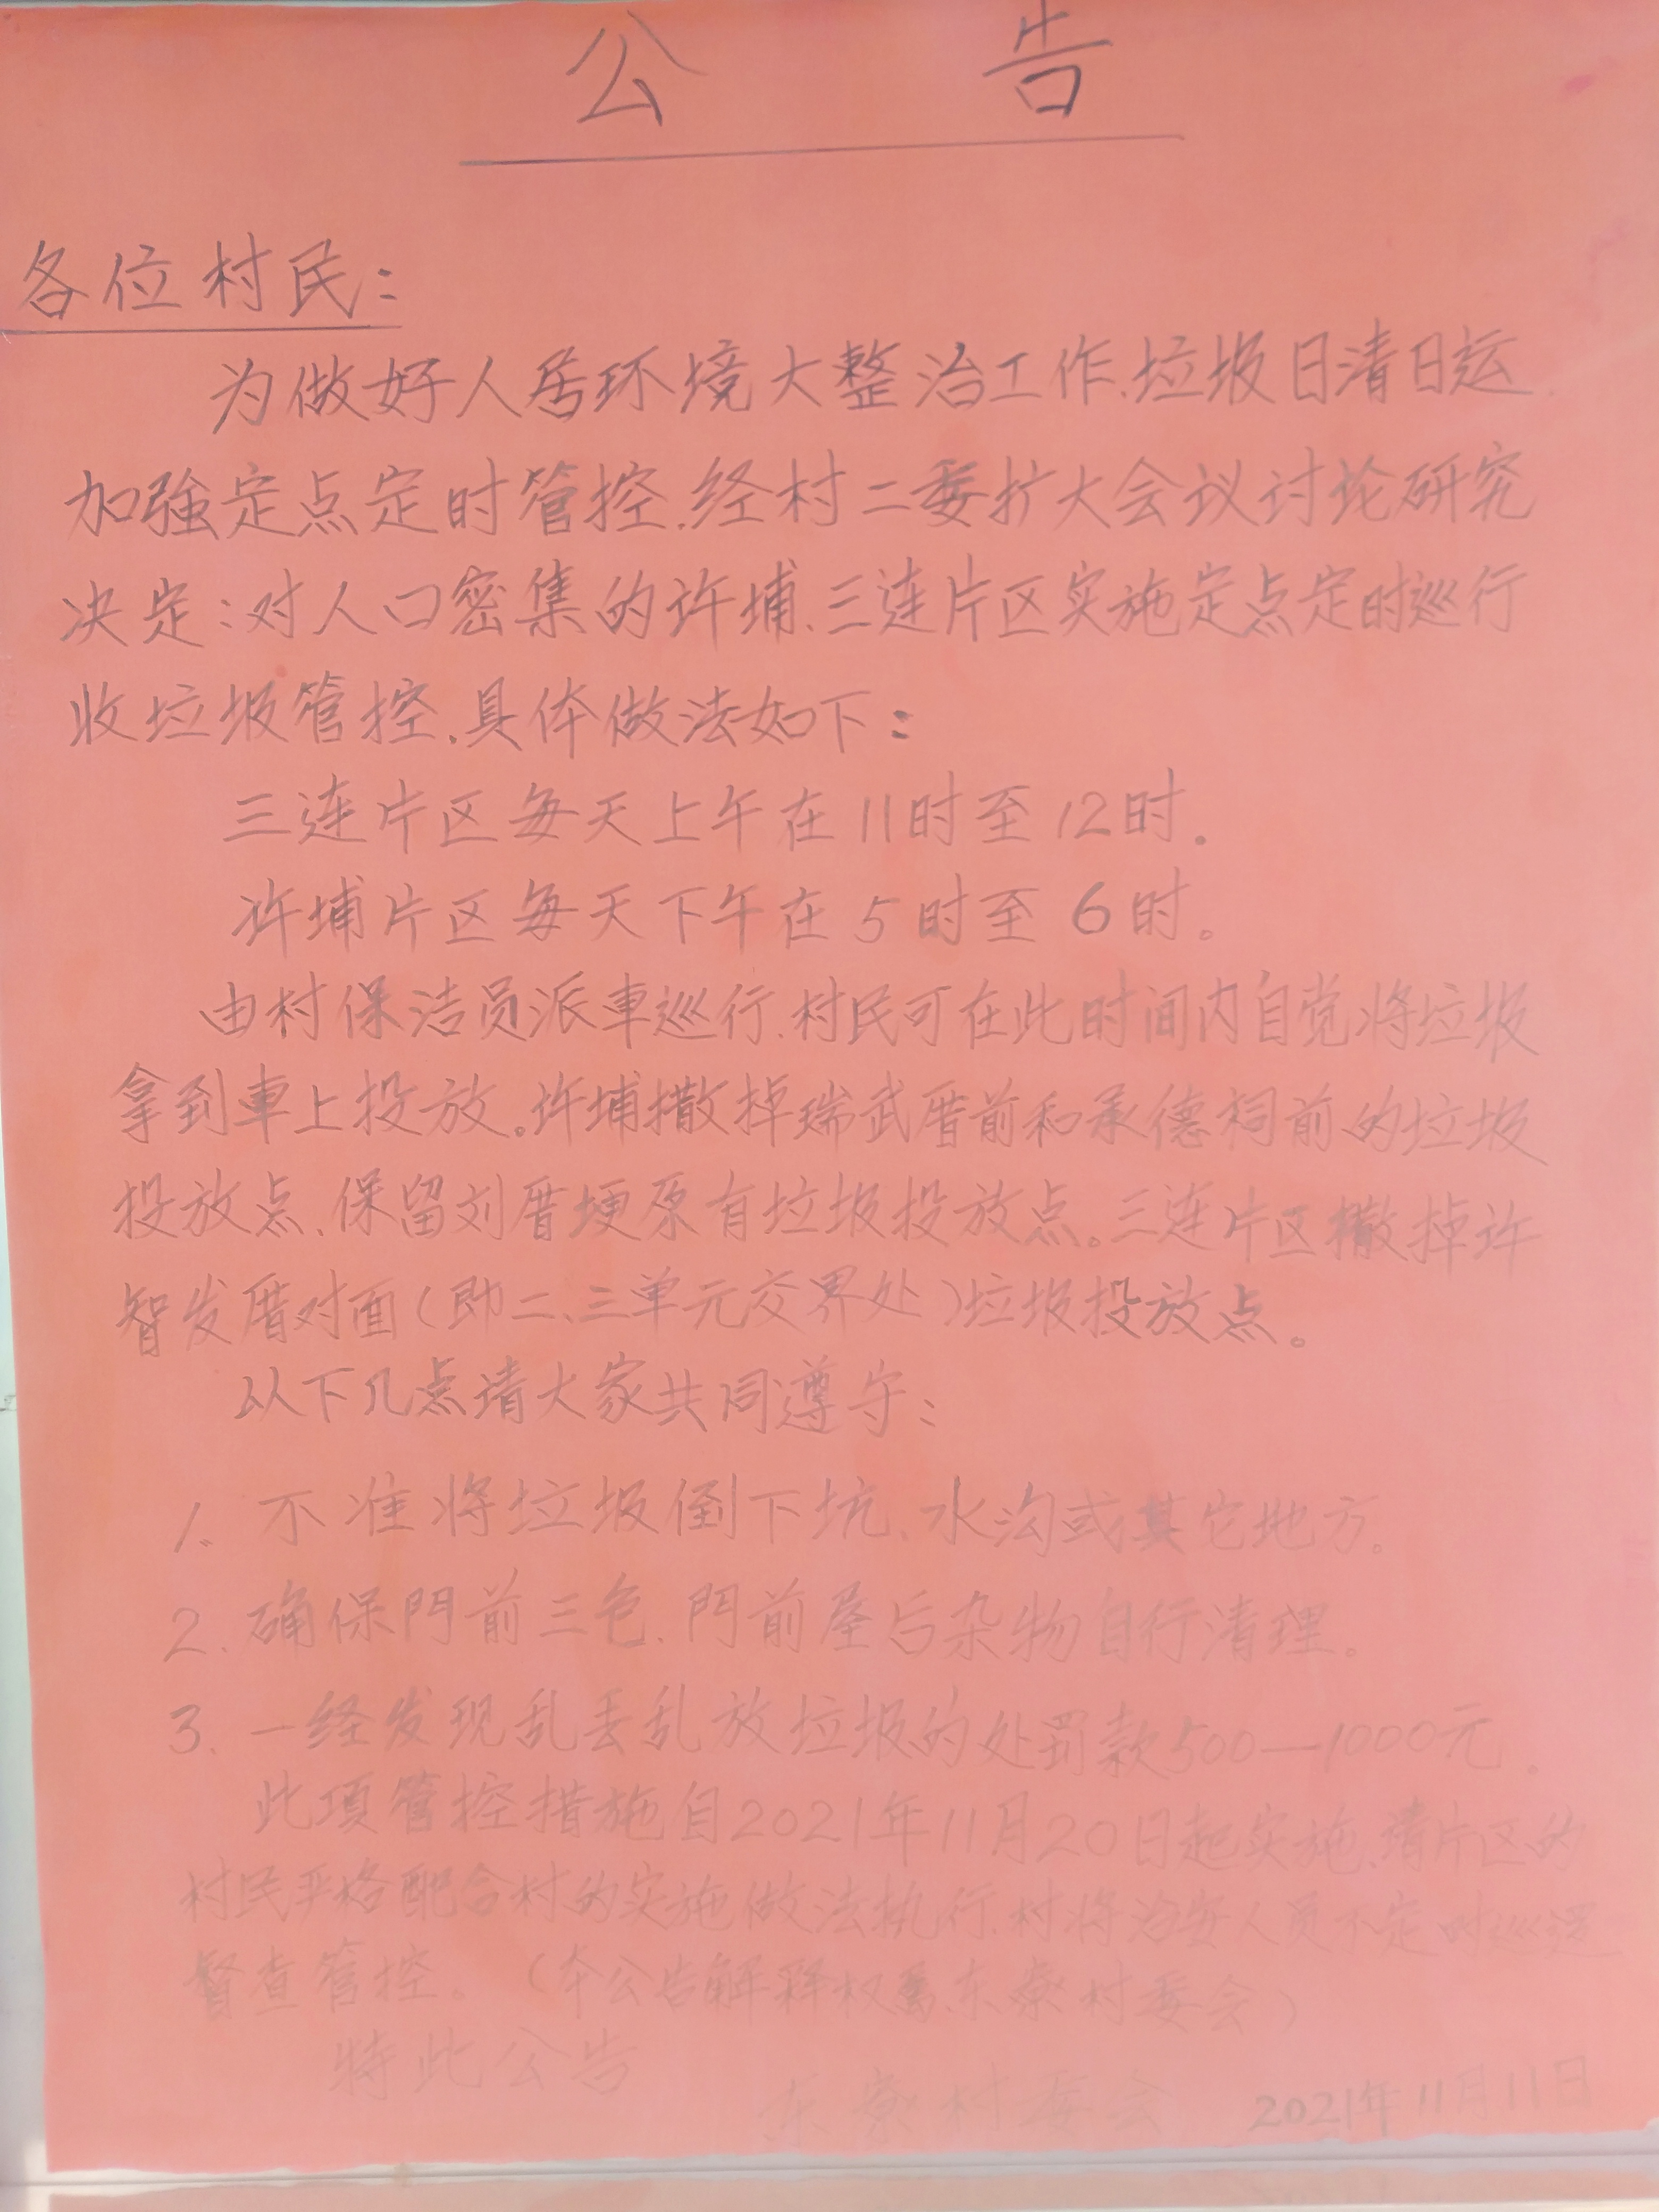 公 告
各位村民:
为做好人居环境大整治工作.垃圾日清日运.
加強定点定时管控.经村二委扩大会议讨论研究
决定:对人口密集的许埔.三连片区实施定点定时巡行
收垃圾管控.具体做法如下:
三连片区每天上午在11时至12时。
许埔片区每天下午在5时至6时。
由村保洁员派車巡行.村民可在此时间内自觉将垃圾
拿到車上投放。许埔撒掉瑞武厝前和承德祠前的垃圾
投放点.保留刘厝埂原有垃圾投放点。三连片区撒掉许
智发厝对面(即二、三单元交界处)垃圾投放点。
以下几点请大家共同遵守:
1. 不准将垃圾倒下坑.水沟或其它地方。
2. 确保門前三包.門前屋后杂物自行清理。
3. 一经发现乱丢乱放垃圾的处罚款500—1000元.
此項管控措施自2021年11月20日起实施.请片区的
村民严格配合村的实施做法执行.村将治安人员不定时巡逻
督查管控。(本公告解释权属东寮村委会)
特此公告
东寮村委会 2021年11月11日